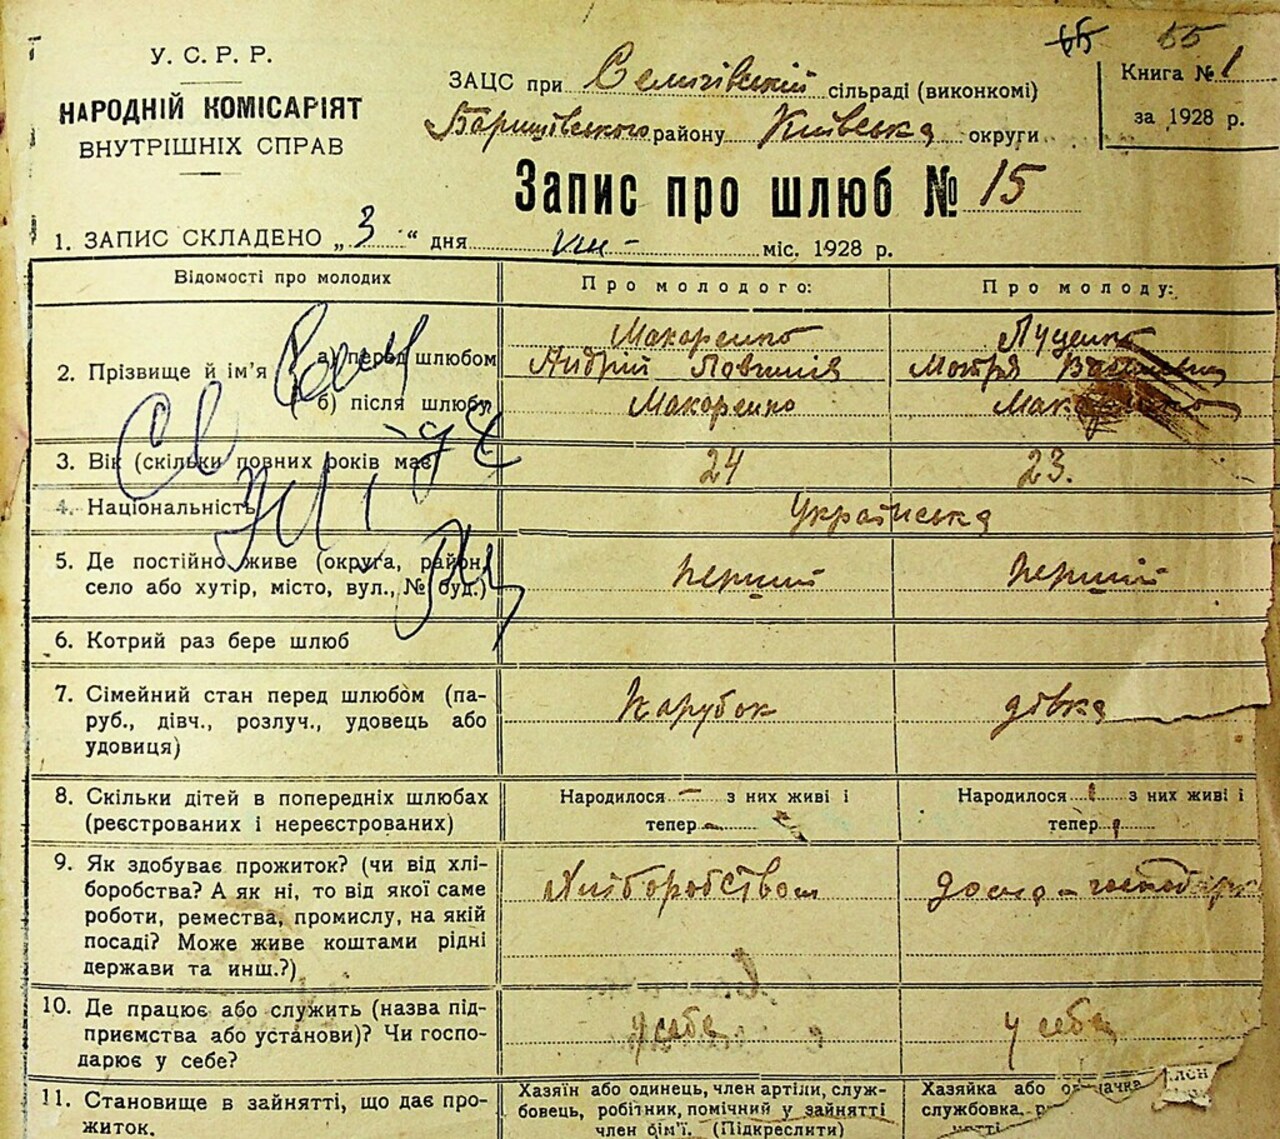 55 55
У. С. Р. Р.
НАРОДНІЙ КОМІСАРІЯТ
ВНУТРІШНІХ СПРАВ
ЗАЦС при сільраді (виконкомі)
Баришівського району Київська округи
Книга № 1
за 1928 р.
Запис про шлюб № 15
1. ЗАПИС СКЛАДЕНО „ 3 “ дня VIII - міс. 1928 р.
Відомості про молодих
Про молодого:
Про молоду:
2. Прізвище й ім'я
а) перед шлюбом
Макаренко
Андрій
Луценко
Мотря
б) після шлюбу
Макаренко
3. Вік (скільки повних років має
24
23.
4. Національність
Українська
5. Де постійно живе (округа, район,
село або хутір, місто, вул., № буд.)
перший
перший
6. Котрий раз бере шлюб
7. Сімейний стан перед шлюбом (па-
руб., дівч., розлуч., удовець або
удовиця)
Парубок
дівка
8. Скільки дітей в попередніх шлюбах
(реєстрованих і нереєстрованих)
Народилося - з них живі і
тепер -
Народилося з них живі і
тепер
9. Як здобуває прожиток? (чи від хлі-
боробства? А як ні, то від якої саме
роботи, ремества, промислу, на якій
посаді? Може живе коштами рідні
держави та инш.?)
Хліборобством
10. Де працює або служить (назва під-
приємства або установи)? Чи госпо-
дарює у себе?
у себе
у себе
11. Становище в зайнятті, що дає про-
житок.
Хазяїн або одинець, член артіли, служ-
бовець, робітник, помічний у зайнятті
член сім'ї. (Підкреслити)
Хазяйка або
службовка,